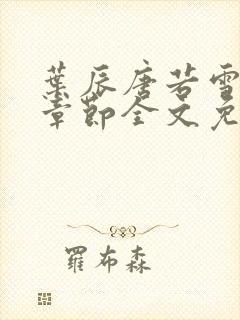 葉辰唐若雪
章節全文免
羅布森